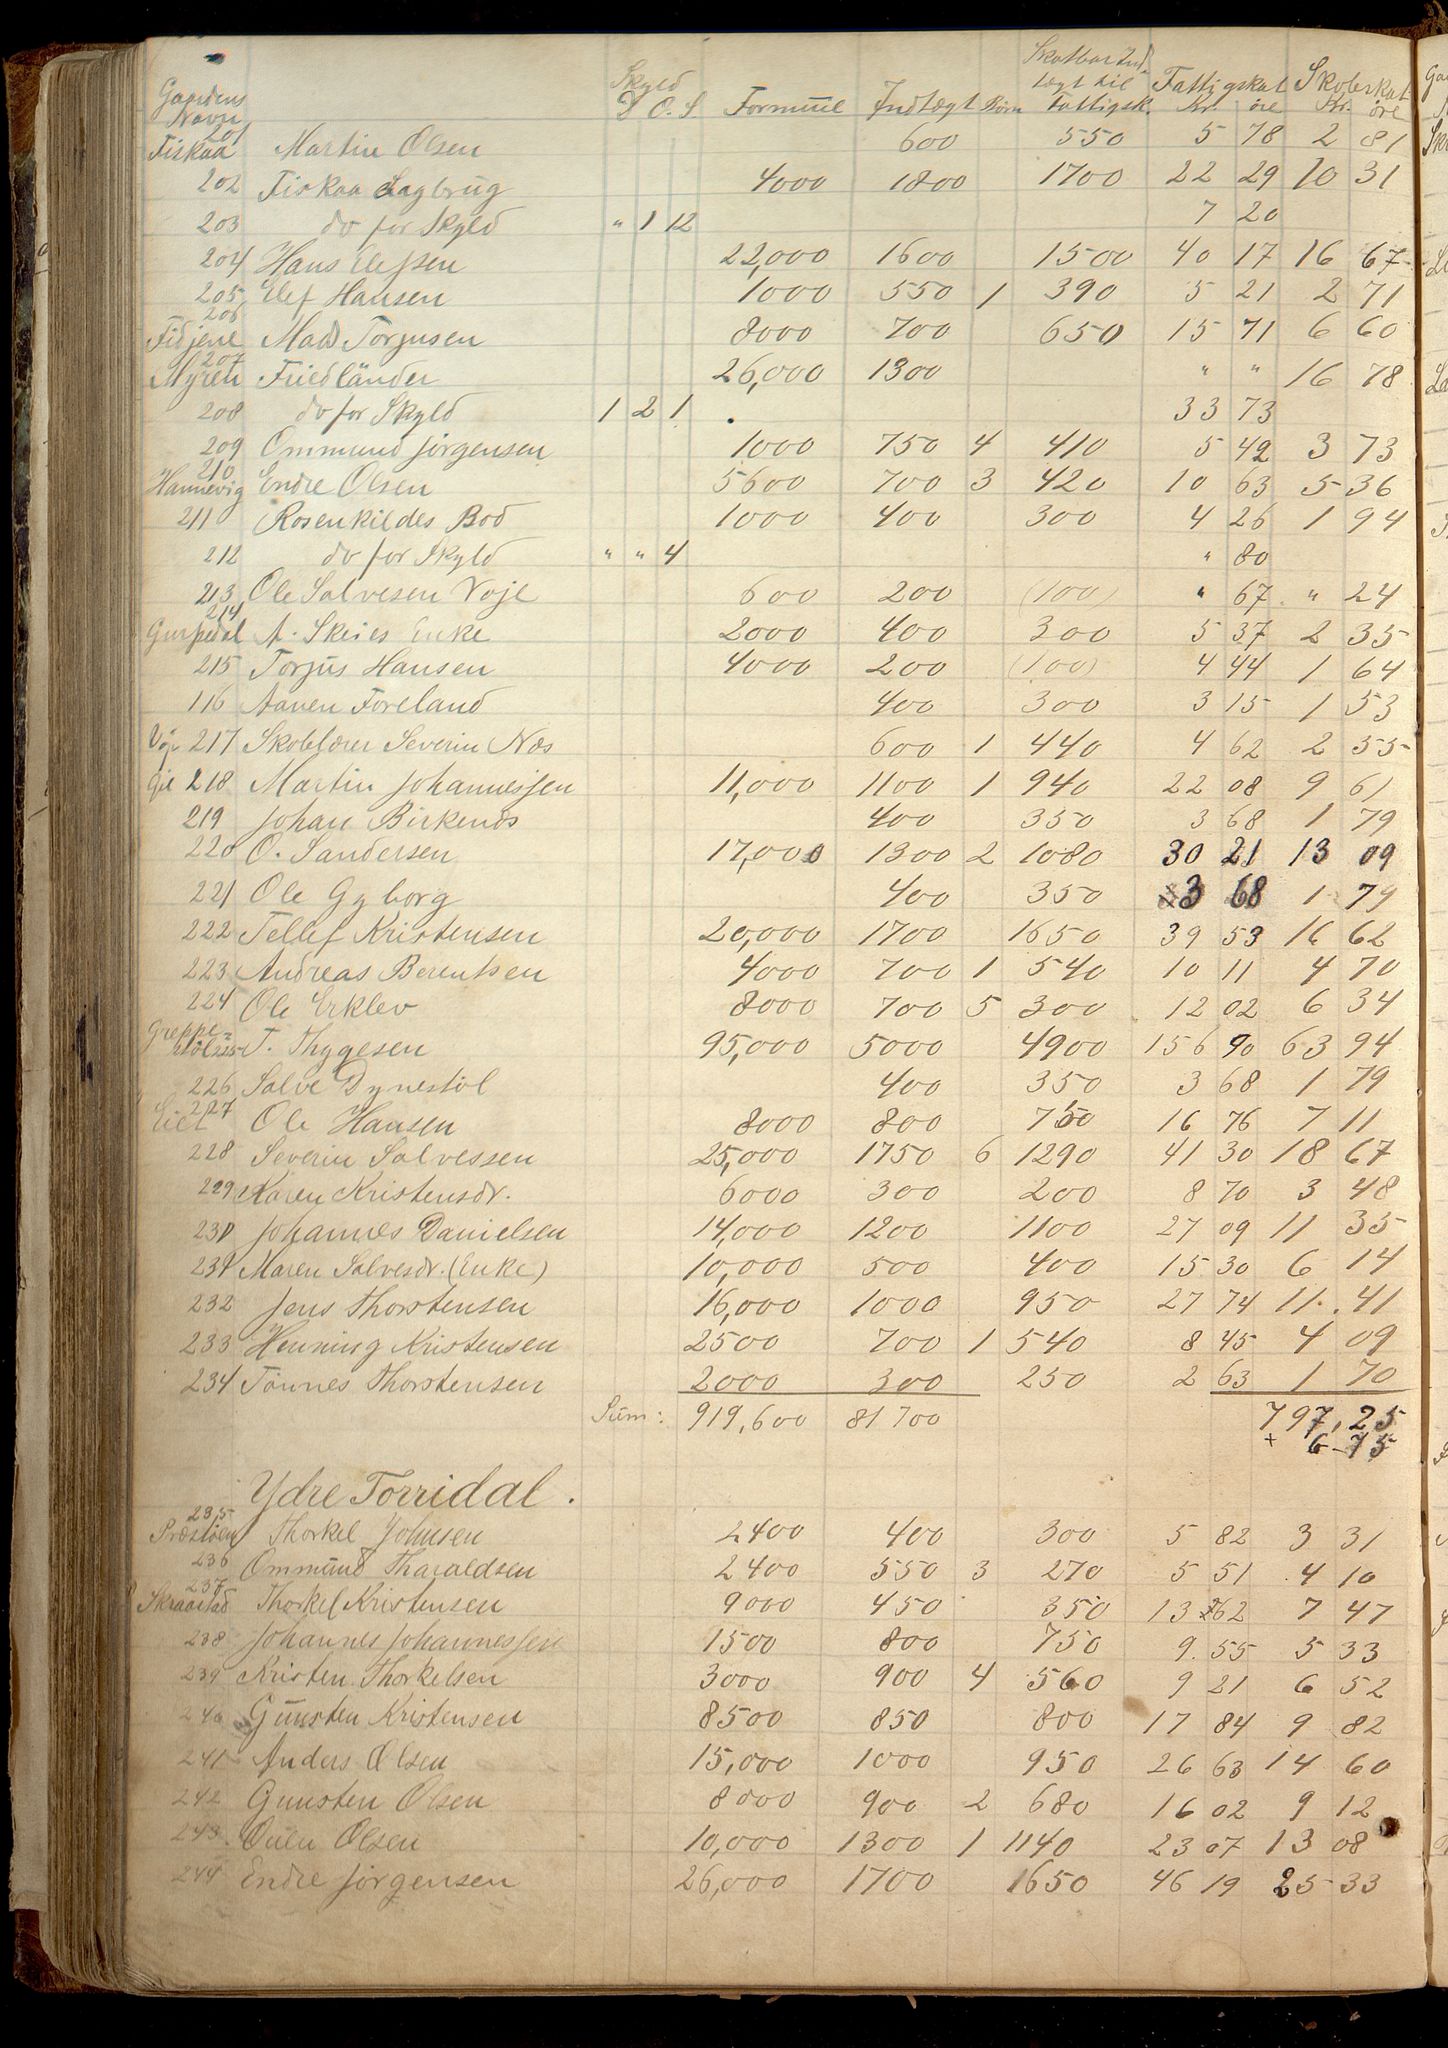 Gaardens Navn | Skyld D O. S | Formue | Indtægt | Børn | Skatbar Indtægt til Fattigsk. | Fattigskat Kr. öre | Skoleskat Kr. öre
Fiskaa 201 Martin Olsen 600 550 5 78 2 81
202 Fiskaa Sagbrug 4000 1800 1700 22 29 10 31
203 do for Skyld " 1 12 7 20
204 Hans Elefsen 22,000 1600 1500 40 17 16 67
205 Elef Hansen 1000 550 1 390 5 21 2 71
206 Fidjene Mads Torjusen 8000 700 650 15 71 6 60
207 Myren Friedländer 26,000 1300 " " 16 78
208 do for Skyld 1 2 1 33 73
209 Ommund Jørgensen 1000 750 4 410 5 42 3 73
210 Hannevig Endre Olsen 5600 700 3 420 10 63 5 36
211 Rosenkildes Bod 1000 400 300 4 26 1 94
212 do for Skyld " " 4 " 80
213 Ole Salvesen Voje 600 200 (100) " 67 " 24
214 Gumpedal A. Skeies Enke 2000 400 300 5 37 2 35
215 Torjus Hansen 4000 200 (100) 4 44 1 64
116 Aanen Foreland 400 300 3 15 1 53
217 Skolelærer Severin Næs 600 1 440 4 62 2 55
218 Martin Johannesjen 11,000 1100 1 940 22 08 9 61
219 Johan Birkenes 400 350 3 68 1 79
220 O. Sandersen 17,000 1300 2 1080 30 21 13 09
221 Ole Gyborg 400 350 3 68 1 79
222 Tellef Kristensen 20,000 1700 1650 39 53 16 62
223 Andreas Berentsen 4000 700 1 540 10 11 4 70
224 Ole Erklev 8000 700 5 300 12 02 6 34
Greppestöl 225 T. Thygesen 95,000 5000 4900 156 90 63 94
226 Salve Dynestöl 400 350 3 68 1 79
227 Eiet Ole Hansen 8000 800 750 16 76 7 11
228 Severin Salvessen 25,000 1750 6 1290 41 30 18 67
229 Karen Kristensdr. 6000 300 200 8 70 3 48
230 Johannes Danielsen 14,000 1200 1100 27 09 11 35
231 Maren Salvesdr. (Enke) 10,000 500 400 15 30 6 14
232 Jens Thorstensen 16,000 1000 950 27 74 11 41
233 Henning Kristensen 2500 700 1 540 8 45 4 09
234 Tönnes Thorstensen 2000 300 250 2 63 1 70
Sum: 919,600 81700 797,25
+ 6-75
Ydre Torridal.
235 Præstöen Thorkel Johnsen 2400 400 300 5 82 3 31
236 Ommund Tharaldsen 2400 550 3 270 5 51 4 10
237 Skraastad Thorkel Kristensen 9000 450 350 13 62 7 47
238 Johannes Johannesjen 1500 800 750 9 55 5 33
239 Kristen Thorkelsen 3000 900 4 560 9 21 6 52
240 Gunsten Kristensen 8500 850 800 17 84 9 82
241 Anders Olsen 15,000 1000 950 26 63 14 60
242 Gunsten Olsen 8000 900 2 680 16 02 9 12
243 Ouen Olsen 10,000 1300 1 1140 23 07 13 08
244 Endre Jørgensen 26,000 1700 1650 46 19 25 33